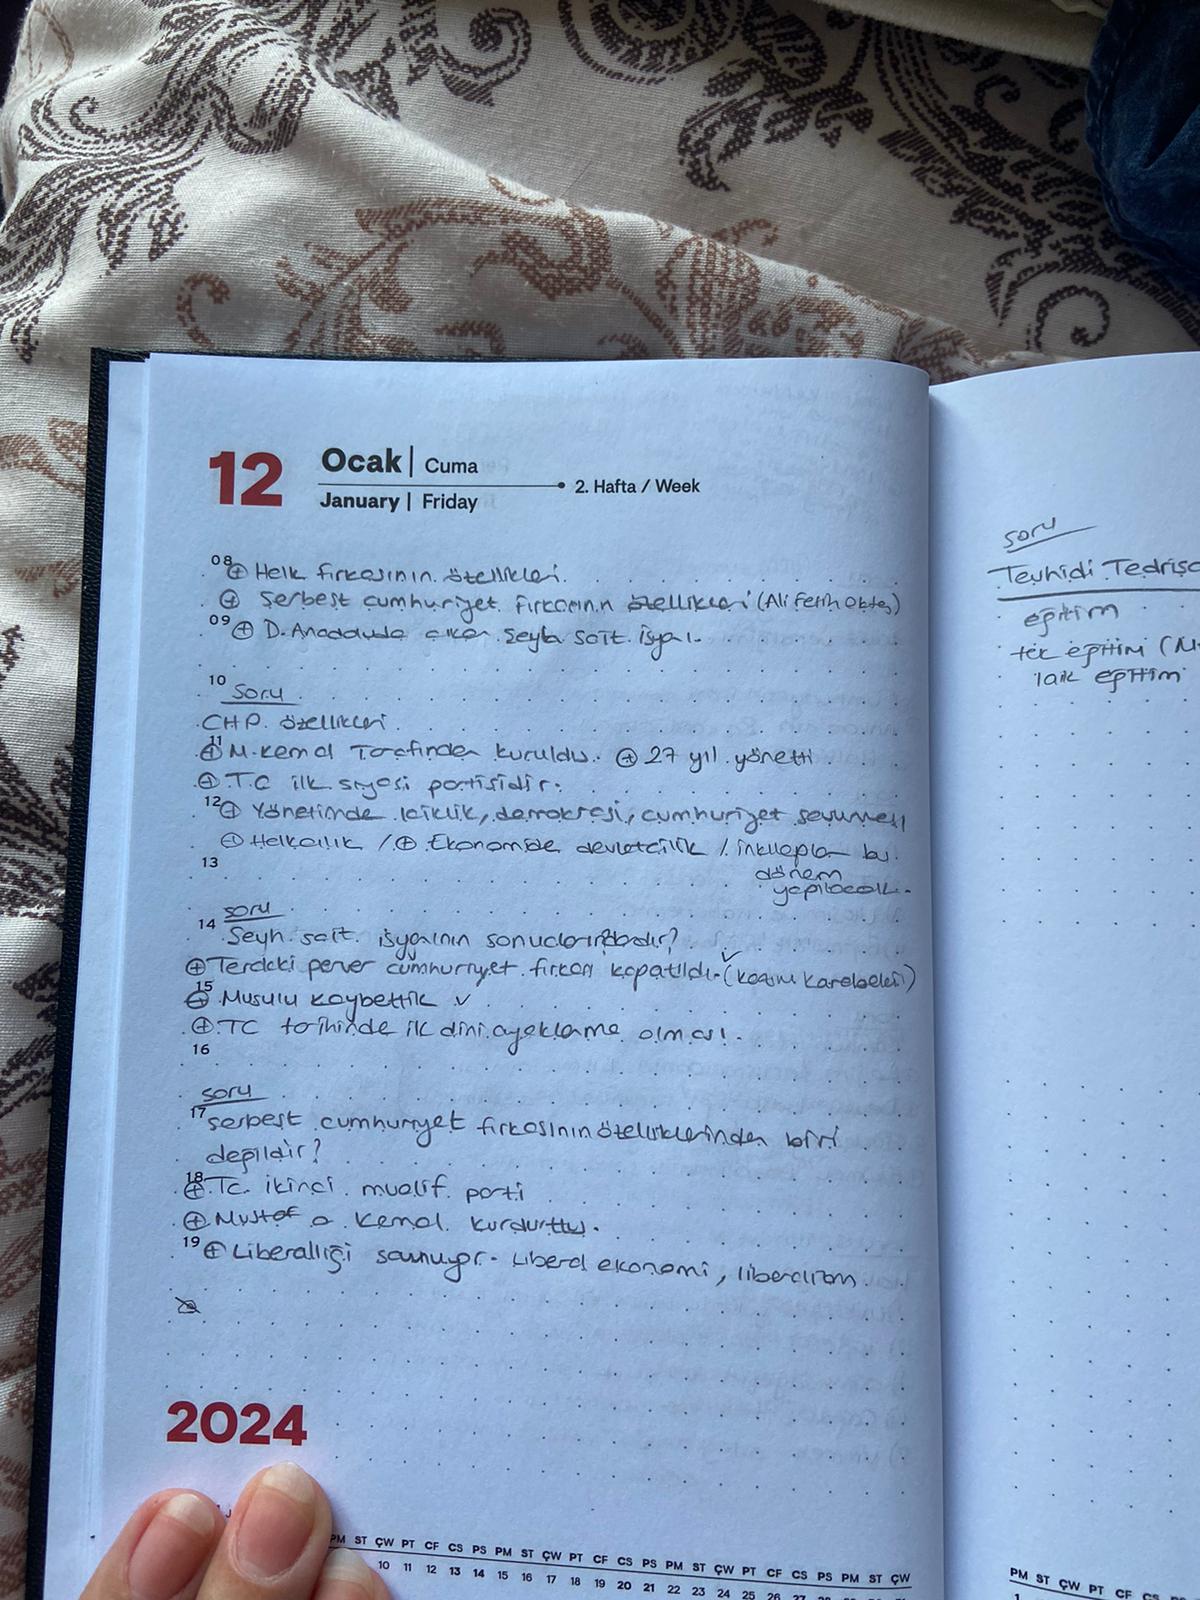 12 Ocak | Cuma
January | Friday
2. Hafta / Week
08 ⊕ Halk fırkasının özellikleri.
⊕ Serbest cumhuriyet fırkasının özellikleri (Ali Fethi Oktaş)
09 ⊕ D. Anadoluda çıkan Şeyh Sait isyanı.
10 soru
CHP özellikleri
11 ⊕ M. Kemal Tarafından kuruldu. ⊕ 27 yıl yönetti
⊕ T.C ilk siyasi partisidir.
12 ⊕ Yönetimde laiklik, demokrasi, cumhuriyet
⊕ Halkçılık / ⊕ Ekonomide devletçilik / inkılaplar bu
13 dönem
yapılacak.
soru
14 Şeyh sait isyanının sonuclarındandır?
⊕ Terakki perver cumhurryet fırkası kapatıldı. (kazım Karabekir) ✓
15 ⊕ Musulu kaybettik ✓
⊕ TC tarihinde ilk dini ayaklanma olması.
16
soru
17 serbest cumhurryet fırkasının özelliklerinden biri
değildir?
18 ⊕ Tc. ikinci mualif parti
⊕ Mustafa Kemal kurdurttu.
19 ⊕ Liberalliği savnuyor. Liberal ekonomi, liberalizm
2024
PM ST ÇW PT CF CS PS PM ST ÇW PT CF CS PS PM ST ÇW PT CF CS PS PM ST ÇW
10 11 12 13 14 15 16 17 18 19 20 21 22 23 24 25 26 27
soru
Tevhidi Tedrisa
eğitim
tek eğitim (M
laik eğitim
PM ST ÇW PT CF CS
1